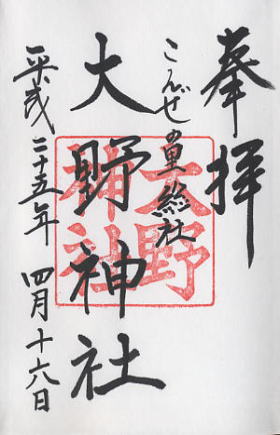 奉拝
こんぜの里総社
大野神社
平成二十五年 四月十六日
大野
神社